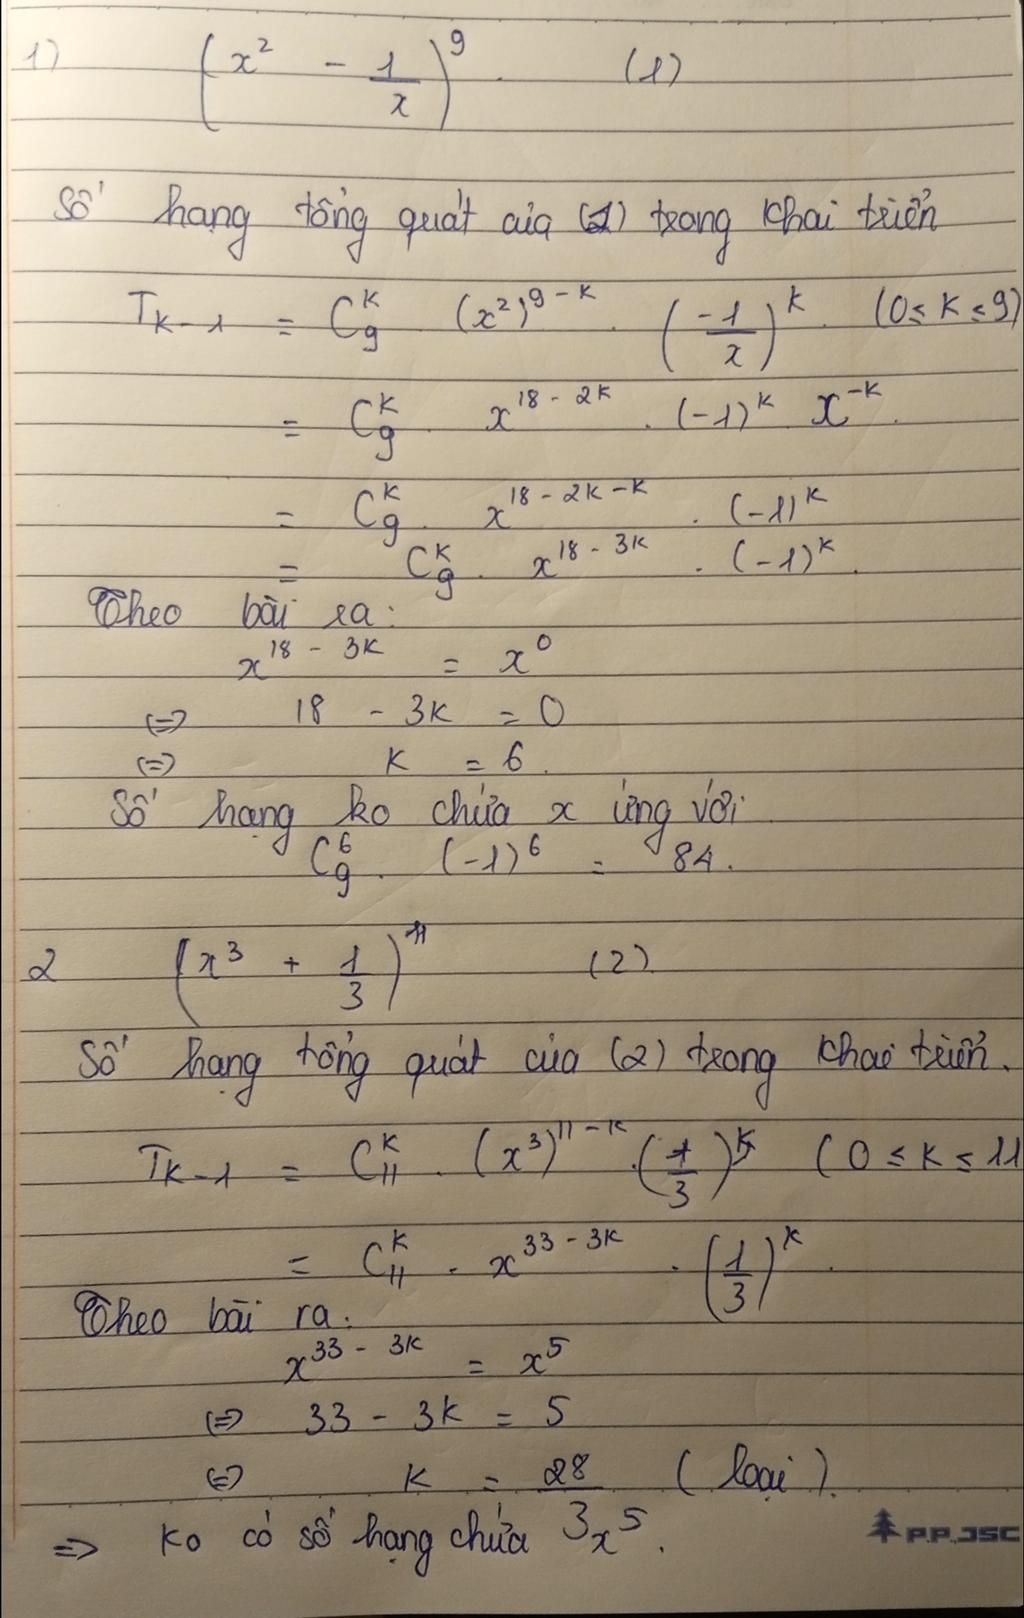 1) (x² - 1/x)⁹. (1)
Số hạng tổng quát của (1) trong khai triển
T_{k-1} = C₉ᵏ (x²)^{9-k} . (-1/x)^k. (0≤k≤9)
= C₉ᵏ. x^{18-2k} . (-1)^k x^{-k}.
= C₉ᵏ. x^{18-2k-k} . (-1)^k
= C₉ᵏ. x^{18-3k} . (-1)^k.
Theo bài ra:
x^{18-3k} = x⁰
(=) 18 - 3k = 0
(=) k = 6.
Số hạng ko chứa x ứng với
C₉⁶. (-1)⁶ = 84.
2 (x³ + 1/3)¹¹ (2)
Số hạng tổng quát của (2) trong khai triển.
T_{k-1} = C₁₁ᵏ . (x³)^{11-k} . (1/3)^k (0 ≤ k ≤ 11
= C₁₁ᵏ . x^{33-3k} . (1/3)^k.
Theo bài ra:
x^{33-3k} = x⁵
(=) 33 - 3k = 5
(=) k = 28/3 (loại).
=> ko có số hạng chứa x⁵.
P.P.,JSC